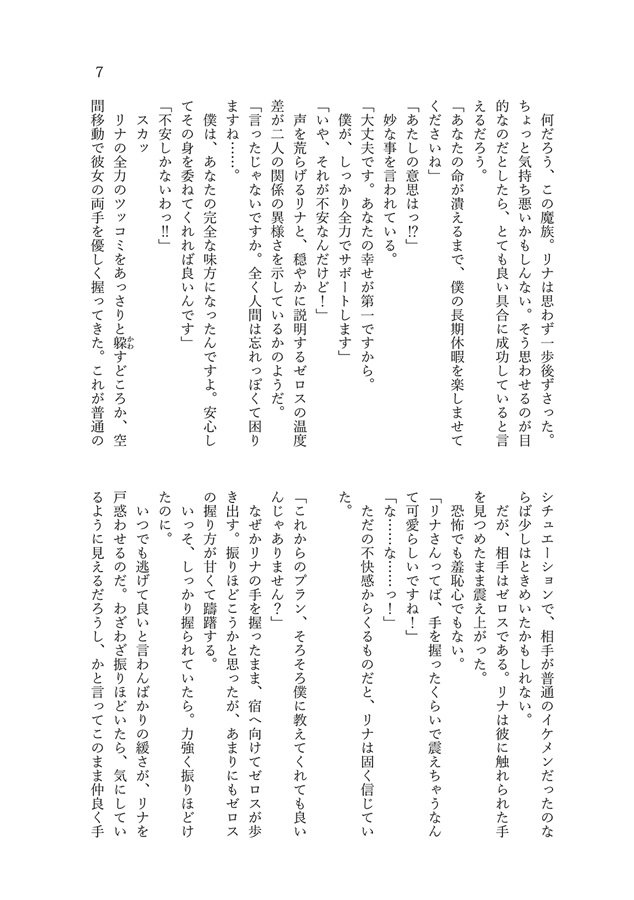 7
何だろう、この魔族。リナは思わず一歩後ずさった。
ちょっと気持ち悪いかもしんない。そう思わせるのが目
的なのだとしたら、とても良い具合に成功していると言
えるだろう。
「あなたの命が潰えるまで、僕の長期休暇を楽しませて
くださいね」
「あたしの意思はっ!?」
妙な事を言われている。
「大丈夫です。あなたの幸せが第一ですから。
僕が、しっかり全力でサポートします」
「いや、それが不安なんだけど！」
声を荒らげるリナと、穏やかに説明するゼロスの温度
差が二人の関係の異様さを示しているかのようだ。
「言ったじゃないですか。全く人間は忘れっぽくて困り
ますね……。
僕は、あなたの完全な味方になったんですよ。安心し
てその身を委ねてくれれば良いんです」
「不安しかないわっ!!」
スカッ
リナの全力のツッコミをあっさりと躱すどころか、空
かわ
間移動で彼女の両手を優しく握ってきた。これが普通の
シチュエーションで、相手が普通のイケメンだったのな
らば少しはときめいたかもしれない。
だが、相手はゼロスである。リナは彼に触れられた手
を見つめたまま震え上がった。
恐怖でも羞恥心でもない。
「リナさんってば、手を握ったくらいで震えちゃうなん
て可愛らしいですね！」
「な……な……っ！」
ただの不快感からくるものだと、リナは固く信じてい
た。
「これからのプラン、そろそろ僕に教えてくれても良い
んじゃありません？」
なぜかリナの手を握ったまま、宿へ向けてゼロスが歩
き出す。振りほどこうかと思ったが、あまりにもゼロス
の握り方が甘くて躊躇する。
いっそ、しっかり握られていたら。力強く振りほどけ
たのに。
いつでも逃げて良いと言わんばかりの緩さが、リナを
戸惑わせるのだ。わざわざ振りほどいたら、気にしてい
るように見えるだろうし、かと言ってこのまま仲良く手